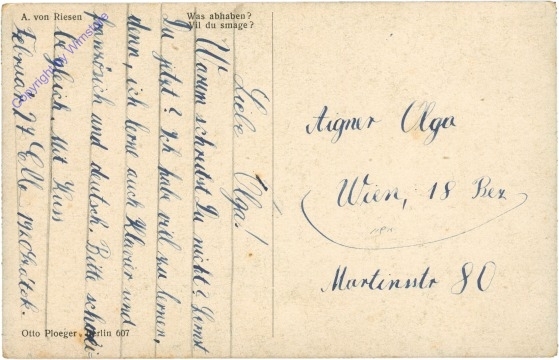 A. von Riesen
Was abhaben?
Vil du smage?
Liebe Olga!
Warum schreibst Du nicht? Lernst
Du jetzt? Ich habe viel zu lernen,
denn, ich lerne auch Klavier und
französisch und deutsch. Bitte schrei-
be gleich. Mit Kuss
Februar 27
Aigner Olga
Wien, 18 Bez
Martinsstr 80
Otto Ploeger, Berlin 607
Copyright by